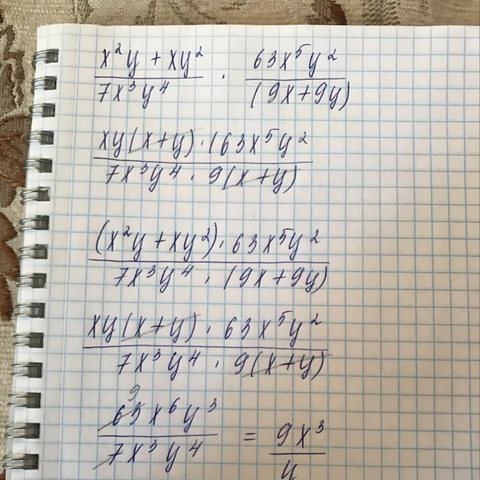 x²y + xy² / 7x³y⁴ · 63x⁵y² / (9x+9y)
xy(x+y)·(63x⁵y² / 7x³y⁴ · 9(x+y)
(x²y + xy²)·63x⁵y² / 7x³y⁴ · (9x+9y)
xy(x+y) · 63x⁵y² / 7x³y⁴ · 9(x+y)
9
63x⁶y³ / 7x³y⁴ = 9x³ / y